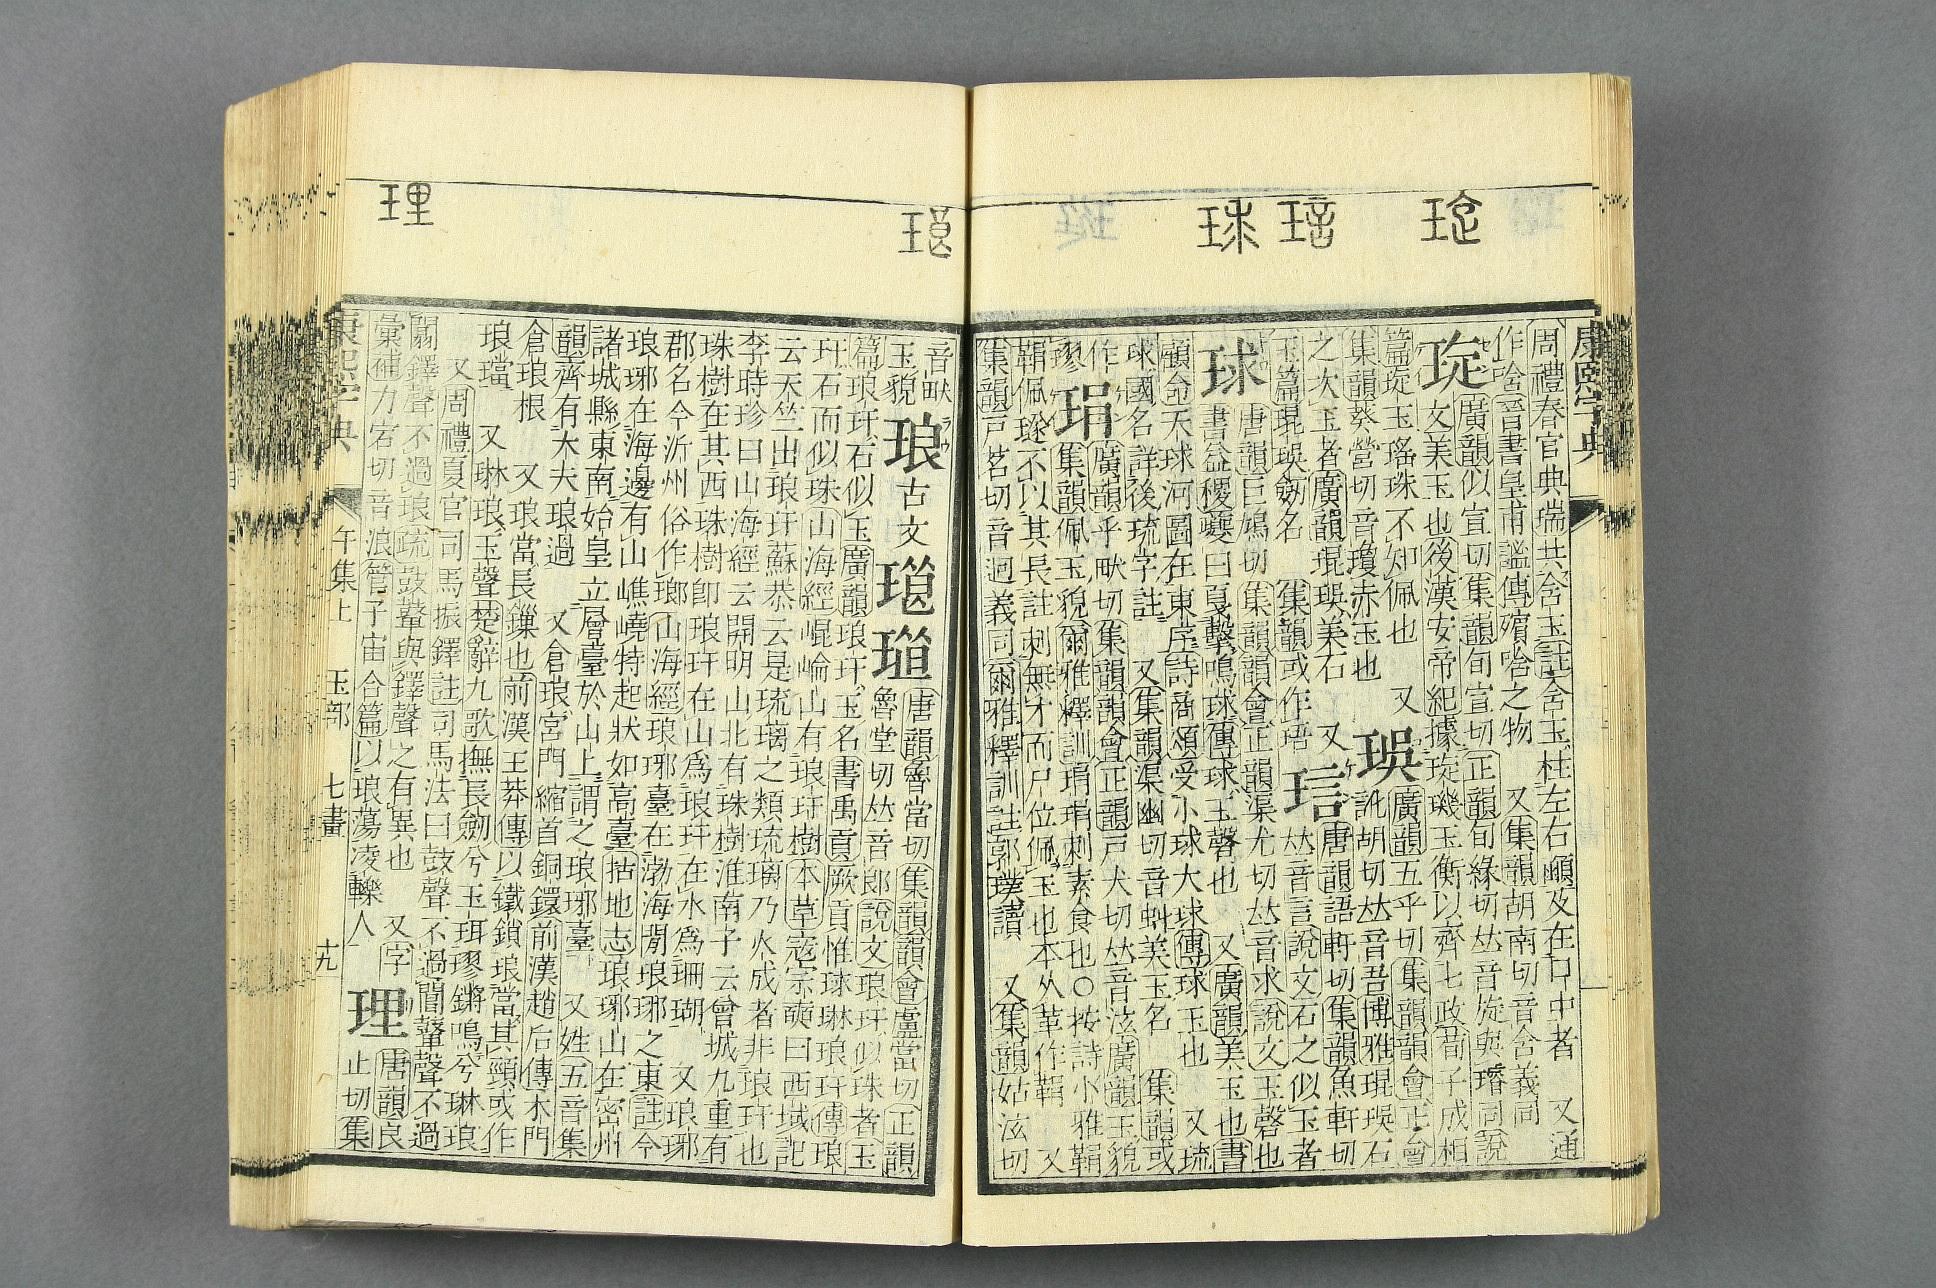 琀 珸 球
康熙字典
周禮春官典瑞共含玉註含玉柱左右顄及在口中者　又通
作唅晉書皇甫謐傳殯唅之物　又集韻胡南切音含義同
琁 廣韻似宣切集韻旬宣切正韻旬緣切𠀤音旋與璿同說
文美玉也後漢安帝紀據琁璣玉衡以齊七政荀子成相
篇琁玉瑤珠不知佩也　又
集韻葵營切音瓊赤玉也
𤥨 廣韻五乎切集韻韻會正韻
訛胡切𠀤音吾博雅琨𤥨石
之次玉者廣韻琨𤥨美石　又
玉篇琨𤥨劒名　集韻或作珸
琂 唐韻語軒切集韻魚軒切
𠀤音言說文石之似玉者
球 唐韻巨鳩切集韻韻會正韻渠尤切𠀤音求說文玉磬也
書益稷夔曰戛擊鳴球傳球玉磬也　又廣韻美玉也書
顧命天球河圖在東序詩商頌受小球大球傳球玉也　又琉
球國名詳後琉字註　又集韻渠幽切音虯美玉名　集韻或
作璆
琄 廣韻乎畎切集韻韻會正韻戶犬切𠀤音泫廣韻玉貌
集韻佩玉貌爾雅釋訓琄琄刺素食也○按詩小雅鞙
鞙佩璲不以其長註刺無才而尸位佩玉也本从革作鞙　又
集韻戶茗切音迥義同爾雅釋訓註郭璞讀　又集韻姑泫切
理
音畎
玉貌
琅 古文
唐韻魯當切集韻韻會盧當切正韻
魯堂切𠀤音郎說文琅玕似珠者玉
篇琅玕石似玉廣韻琅玕玉名書禹貢厥貢惟球琳琅玕傳琅
玕石而似珠山海經崐崘山有琅玕樹本草寇宗奭曰西域記
云天竺出琅玕蘇恭云是琉璃之類琉璃乃火成者非琅玕也
李時珍曰山海經云開明山北有珠樹淮南子云曾城九重有
珠樹在其西珠樹卽琅玕在山爲琅玕在水爲珊瑚　又琅琊
郡名今沂州俗作瑯山海經琅琊臺在渤海閒琅琊之東註今
琅琊在海邊有山嶕嶢特起狀如高臺括地志琅琊山在密州
諸城縣東南始皇立層臺於山上謂之琅琊臺　又姓五音集
韻齊有大夫琅過　又倉琅宮門縮首銅鐶前漢趙后傳木門
倉琅根　又琅當長鏁也前漢王莽傳以鐵鎖琅當其頸或作
琅璫　又琳琅玉聲楚辭九歌撫長劒兮玉珥璆鏘鳴兮琳琅
又周禮夏官司馬振鐸註司馬法曰鼓聲不過閶鼙聲不過
闒鐸聲不過琅疏鼓鼙與鐸聲之有異也　又字
彙補力宕切音浪管子宙合篇以琅蕩凌轢人
理 唐韻良
止切集
康熙字典
午集上　玉部　七畫　十九